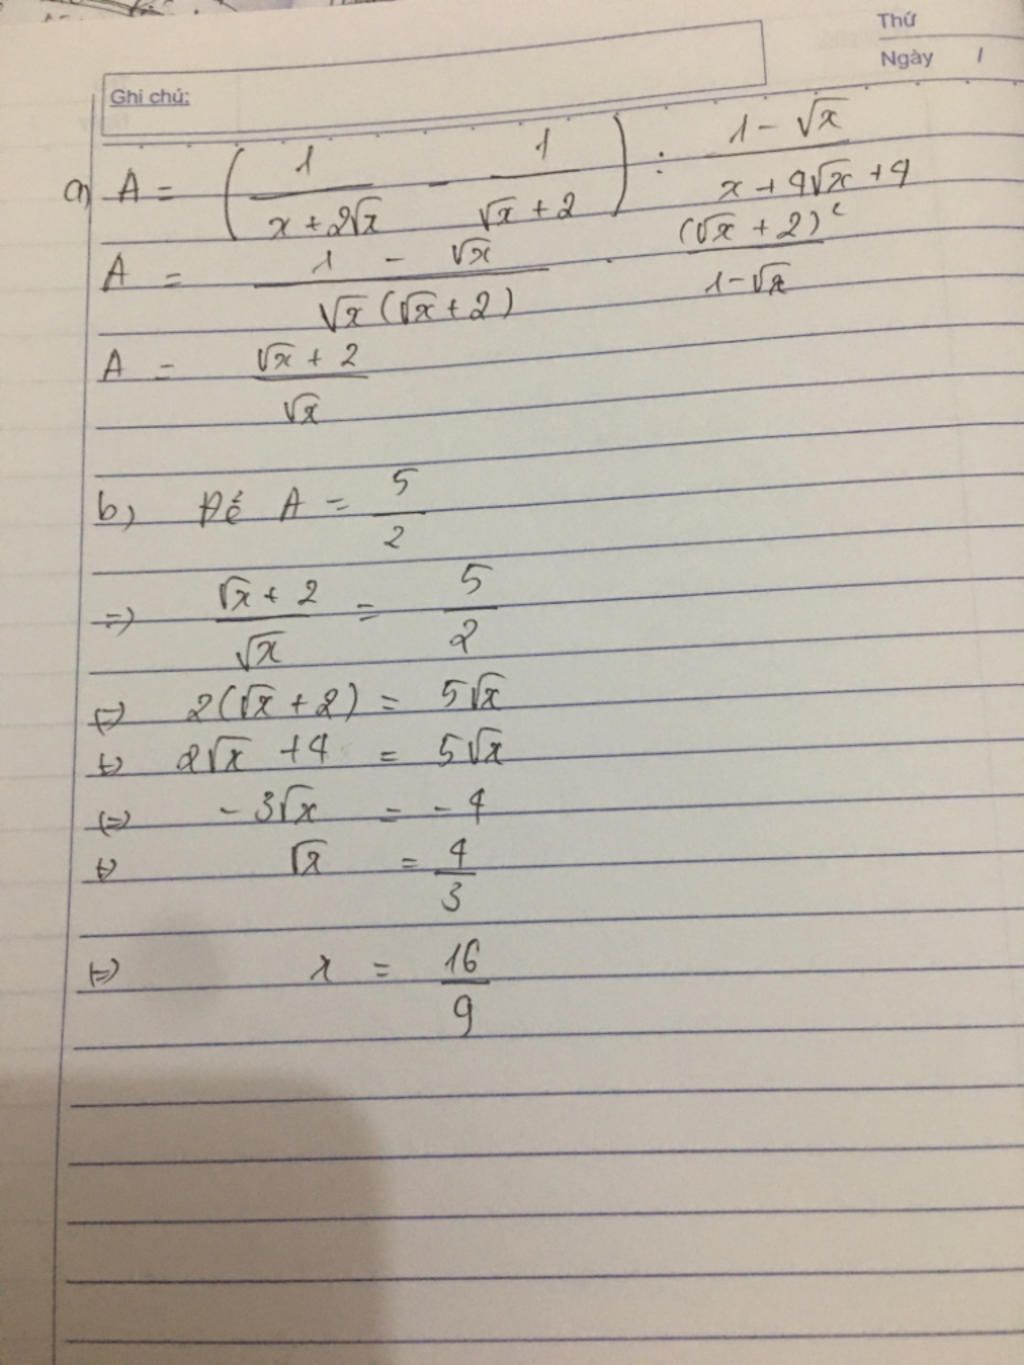 Thứ
Ngày /
Ghi chú:
a) A = ( 1/(x + 2√x) - 1/(√x + 2) ) : (1 - √x)/(x + 4√x + 4)
A = (1 - √x)/(√x(√x + 2)) . (√x + 2)²/(1 - √x)
A = (√x + 2)/√x
b) Để A = 5/2
=> (√x + 2)/√x = 5/2
(=) 2(√x + 2) = 5√x
(=) 2√x + 4 = 5√x
(=) - 3√x = - 4
(=) √x = 4/3
(=) x = 16/9